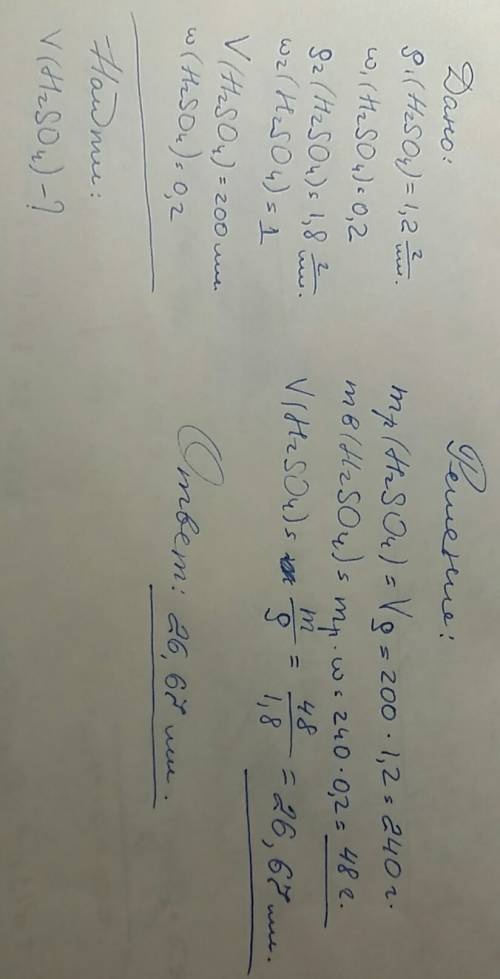 Дано:
ρ₁(H₂SO₄) = 1,2 г/мл.
w₁(H₂SO₄) = 0,2
ρ₂(H₂SO₄) = 1,8 г/мл.
w₂(H₂SO₄) = 1
V(H₂SO₄) = 200 мл
w(H₂SO₄) = 0,2
Найти:
V(H₂SO₄) - ?
Решение:
mр(H₂SO₄) = Vρ = 200 · 1,2 = 240 г.
mв(H₂SO₄) = mр · w = 240 · 0,2 = 48 г.
V(H₂SO₄) = m/ρ = 48/1,8 = 26,67 мл.
Ответ: 26,67 мл.